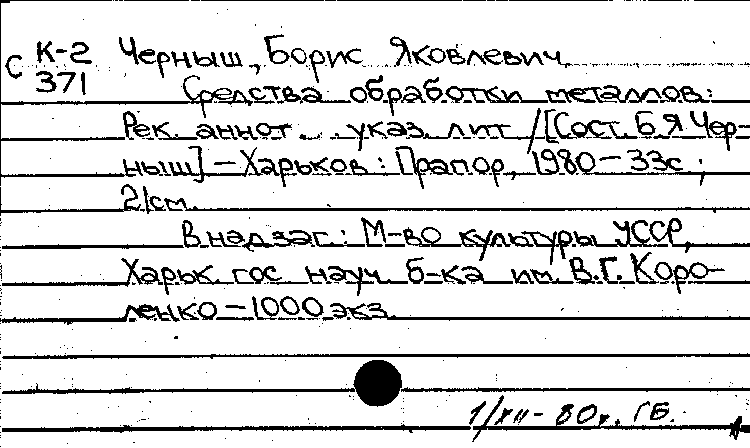 С К-2 Черныш, Борис Яковлевич.
371 Средства обработки металлов:
Рек. аннот. указ. лит / [Сост. Б. Я Чер-
ныш] – Харьков : Прапор, 1980 – 33с ;
21см.
В надзаг.: М-во культуры УССР,
Харьк. гос науч. б-ка им. В.Г. Коро-
ленко – 1000 экз.
1/XII - 80г. ГБ.